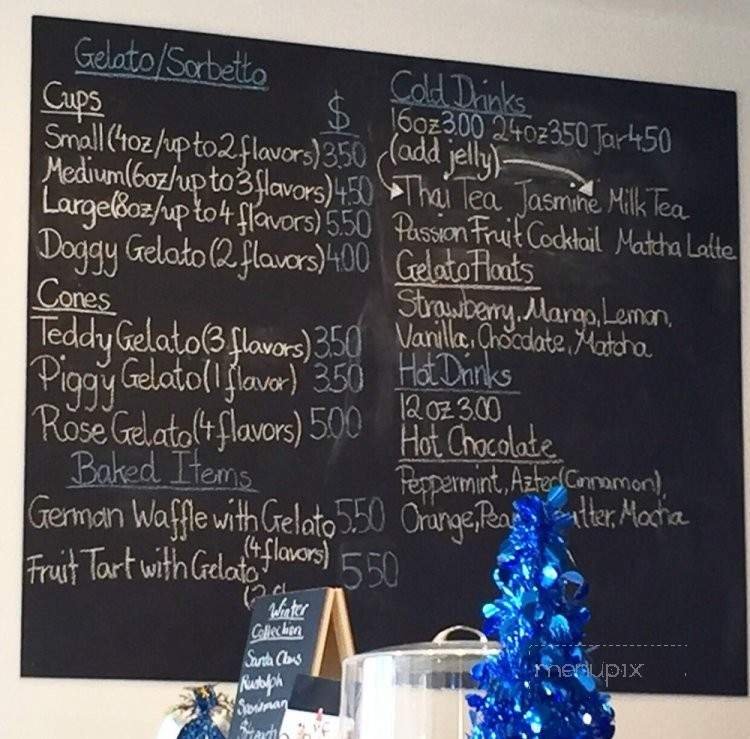 Gelato/Sorbetto
Cups
$
Small(4oz/up to 2 flavors) 3.50
Medium(6oz/up to 3 flavors) 4.50
Large(8oz/up to 4 flavors) 5.50
Doggy Gelato (2 flavors) 4.00
Cones
Teddy Gelato (3 flavors) 3.50
Piggy Gelato (1 flavor) 3.50
Rose Gelato (4 flavors) 5.00
Baked Items
German Waffle with Gelato 5.50
(4 flavors)
Fruit Tart with Gelato 5.50
Cold Drinks
16oz 3.00 24oz 3.50 Jar 4.50
(add jelly)
Thai Tea Jasmine Milk Tea
Passion Fruit Cocktail Matcha Latte
Gelato Floats
Strawberry, Mango, Lemon,
Vanilla, Chocolate, Matcha
Hot Drinks
12oz 3.00
Hot Chocolate
Peppermint, Aztec(Cinnamon),
Orange, Mocha
Winter
Collection
Santa Claus
Rudolph
Snowman
menupix